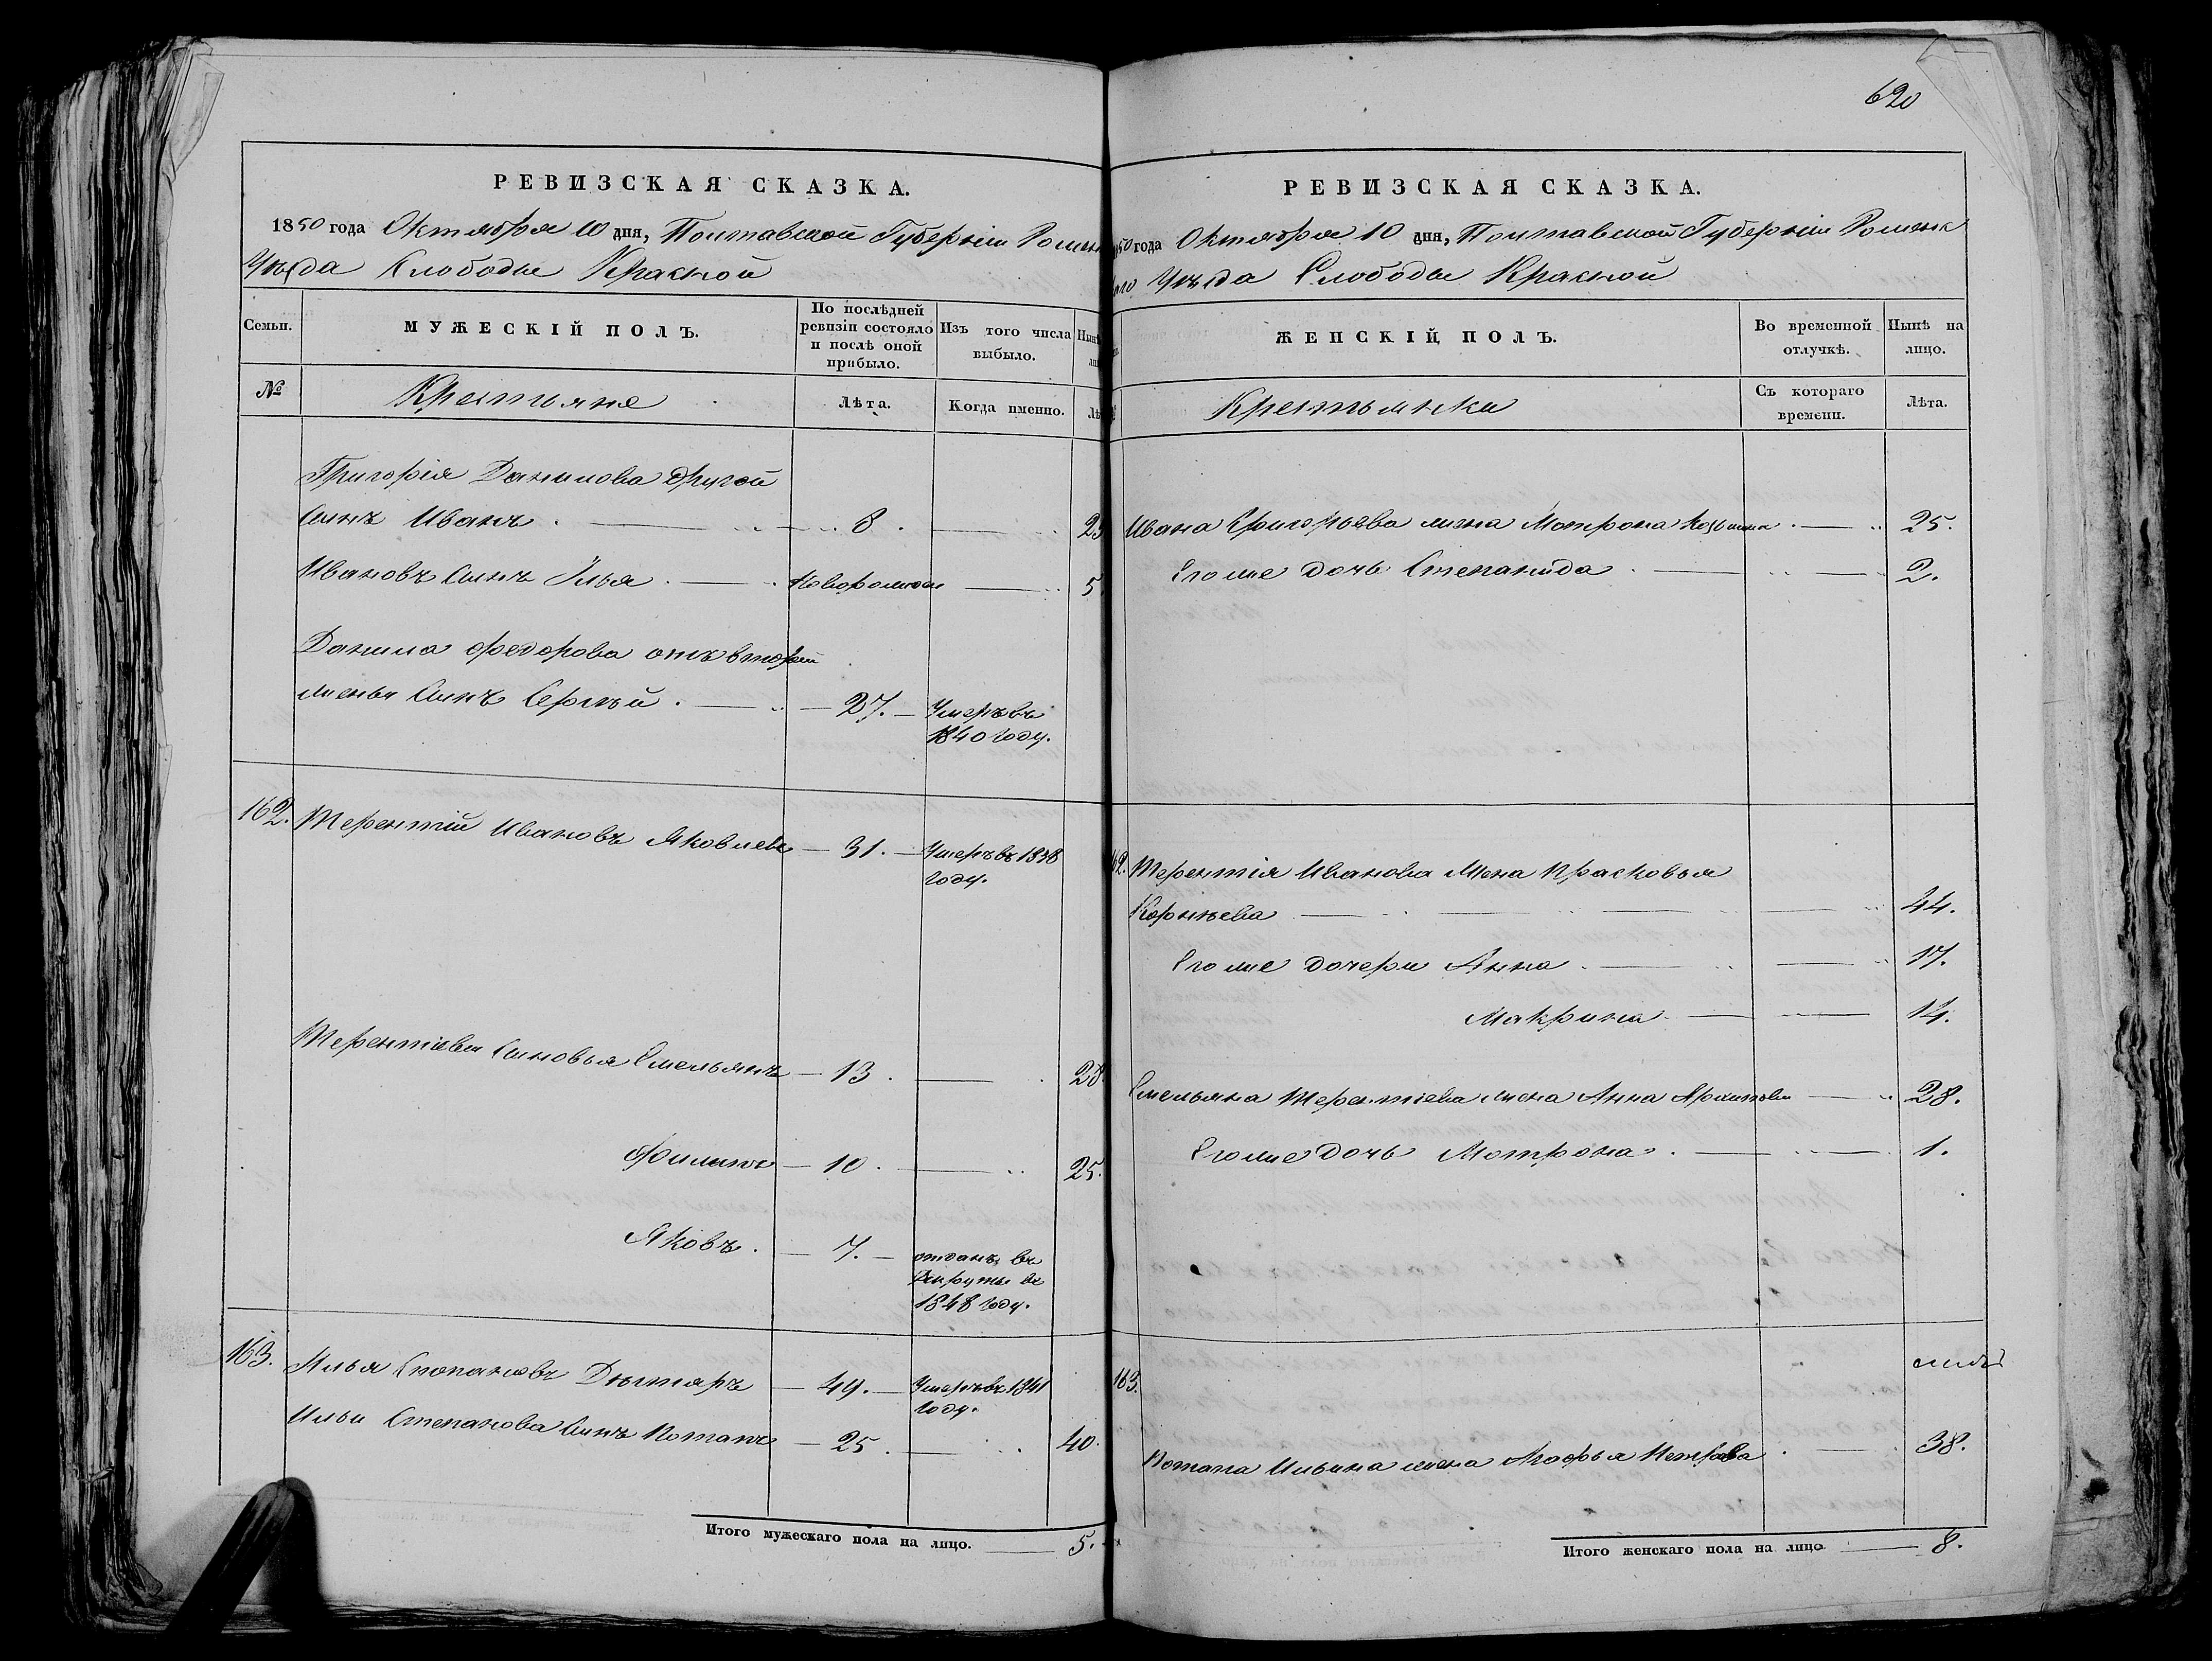 620
РЕВИЗСКАЯ СКАЗКА.
1850 года Октября 10 дня, Полтавской Губерніи Роменс
Уѣзда Слободы Красной
Семьи.
МУЖЕСКІЙ ПОЛЪ.
По послѣдней ревизіи состояло и послѣ оной прибыло.
Изъ того числа выбыло.
№
Крестьяне
Лѣта.
Когда именно.
Григорія Данилова другой
Сынъ Иванъ 8. 23
Ивановъ Сынъ Илья Новорожден 5
Данила Федорова отъ второй
жены Сынъ Сергѣй 27. Умеръ въ
1840 году.
162. Терентій Ивановъ Яковлевъ 31. Умеръ въ 1838
году.
Терентіевы Сыновья Емельянъ 13. 28
Филипъ 10. 25.
Яковъ. 7. отданъ въ
Рекруты въ
1848 году.
163. Илья Степановъ 49. Умеръ въ 1841
году.
Ильи Степанова Сынъ Потапъ 25. 40.
Итого мужескаго пола на лицо. 5.
РЕВИЗСКАЯ СКАЗКА.
50 года Октября 10 дня, Полтавской Губерніи Роменс
аго Уѣзда Слободы Красной
ЖЕНСКІЙ ПОЛЪ.
Во временной отлучкѣ.
Нынѣ на лицо.
Крестьянки
Съ котораго времени.
Лѣта.
Ивана Григорьева жена Мотрона 25.
Его же дочь Степанида 2.
62. Терентія Иванова Жена Прасковья
Корнѣева 44.
Его же дочери Анна 17.
Макрина 14.
Емельяна Терентіева жена Анна Архипова 28.
Его же дочь Мотрона 1.
163.
Потапа Ильина жена Агафья Петрова 38.
Итого женскаго пола на лицо 8.